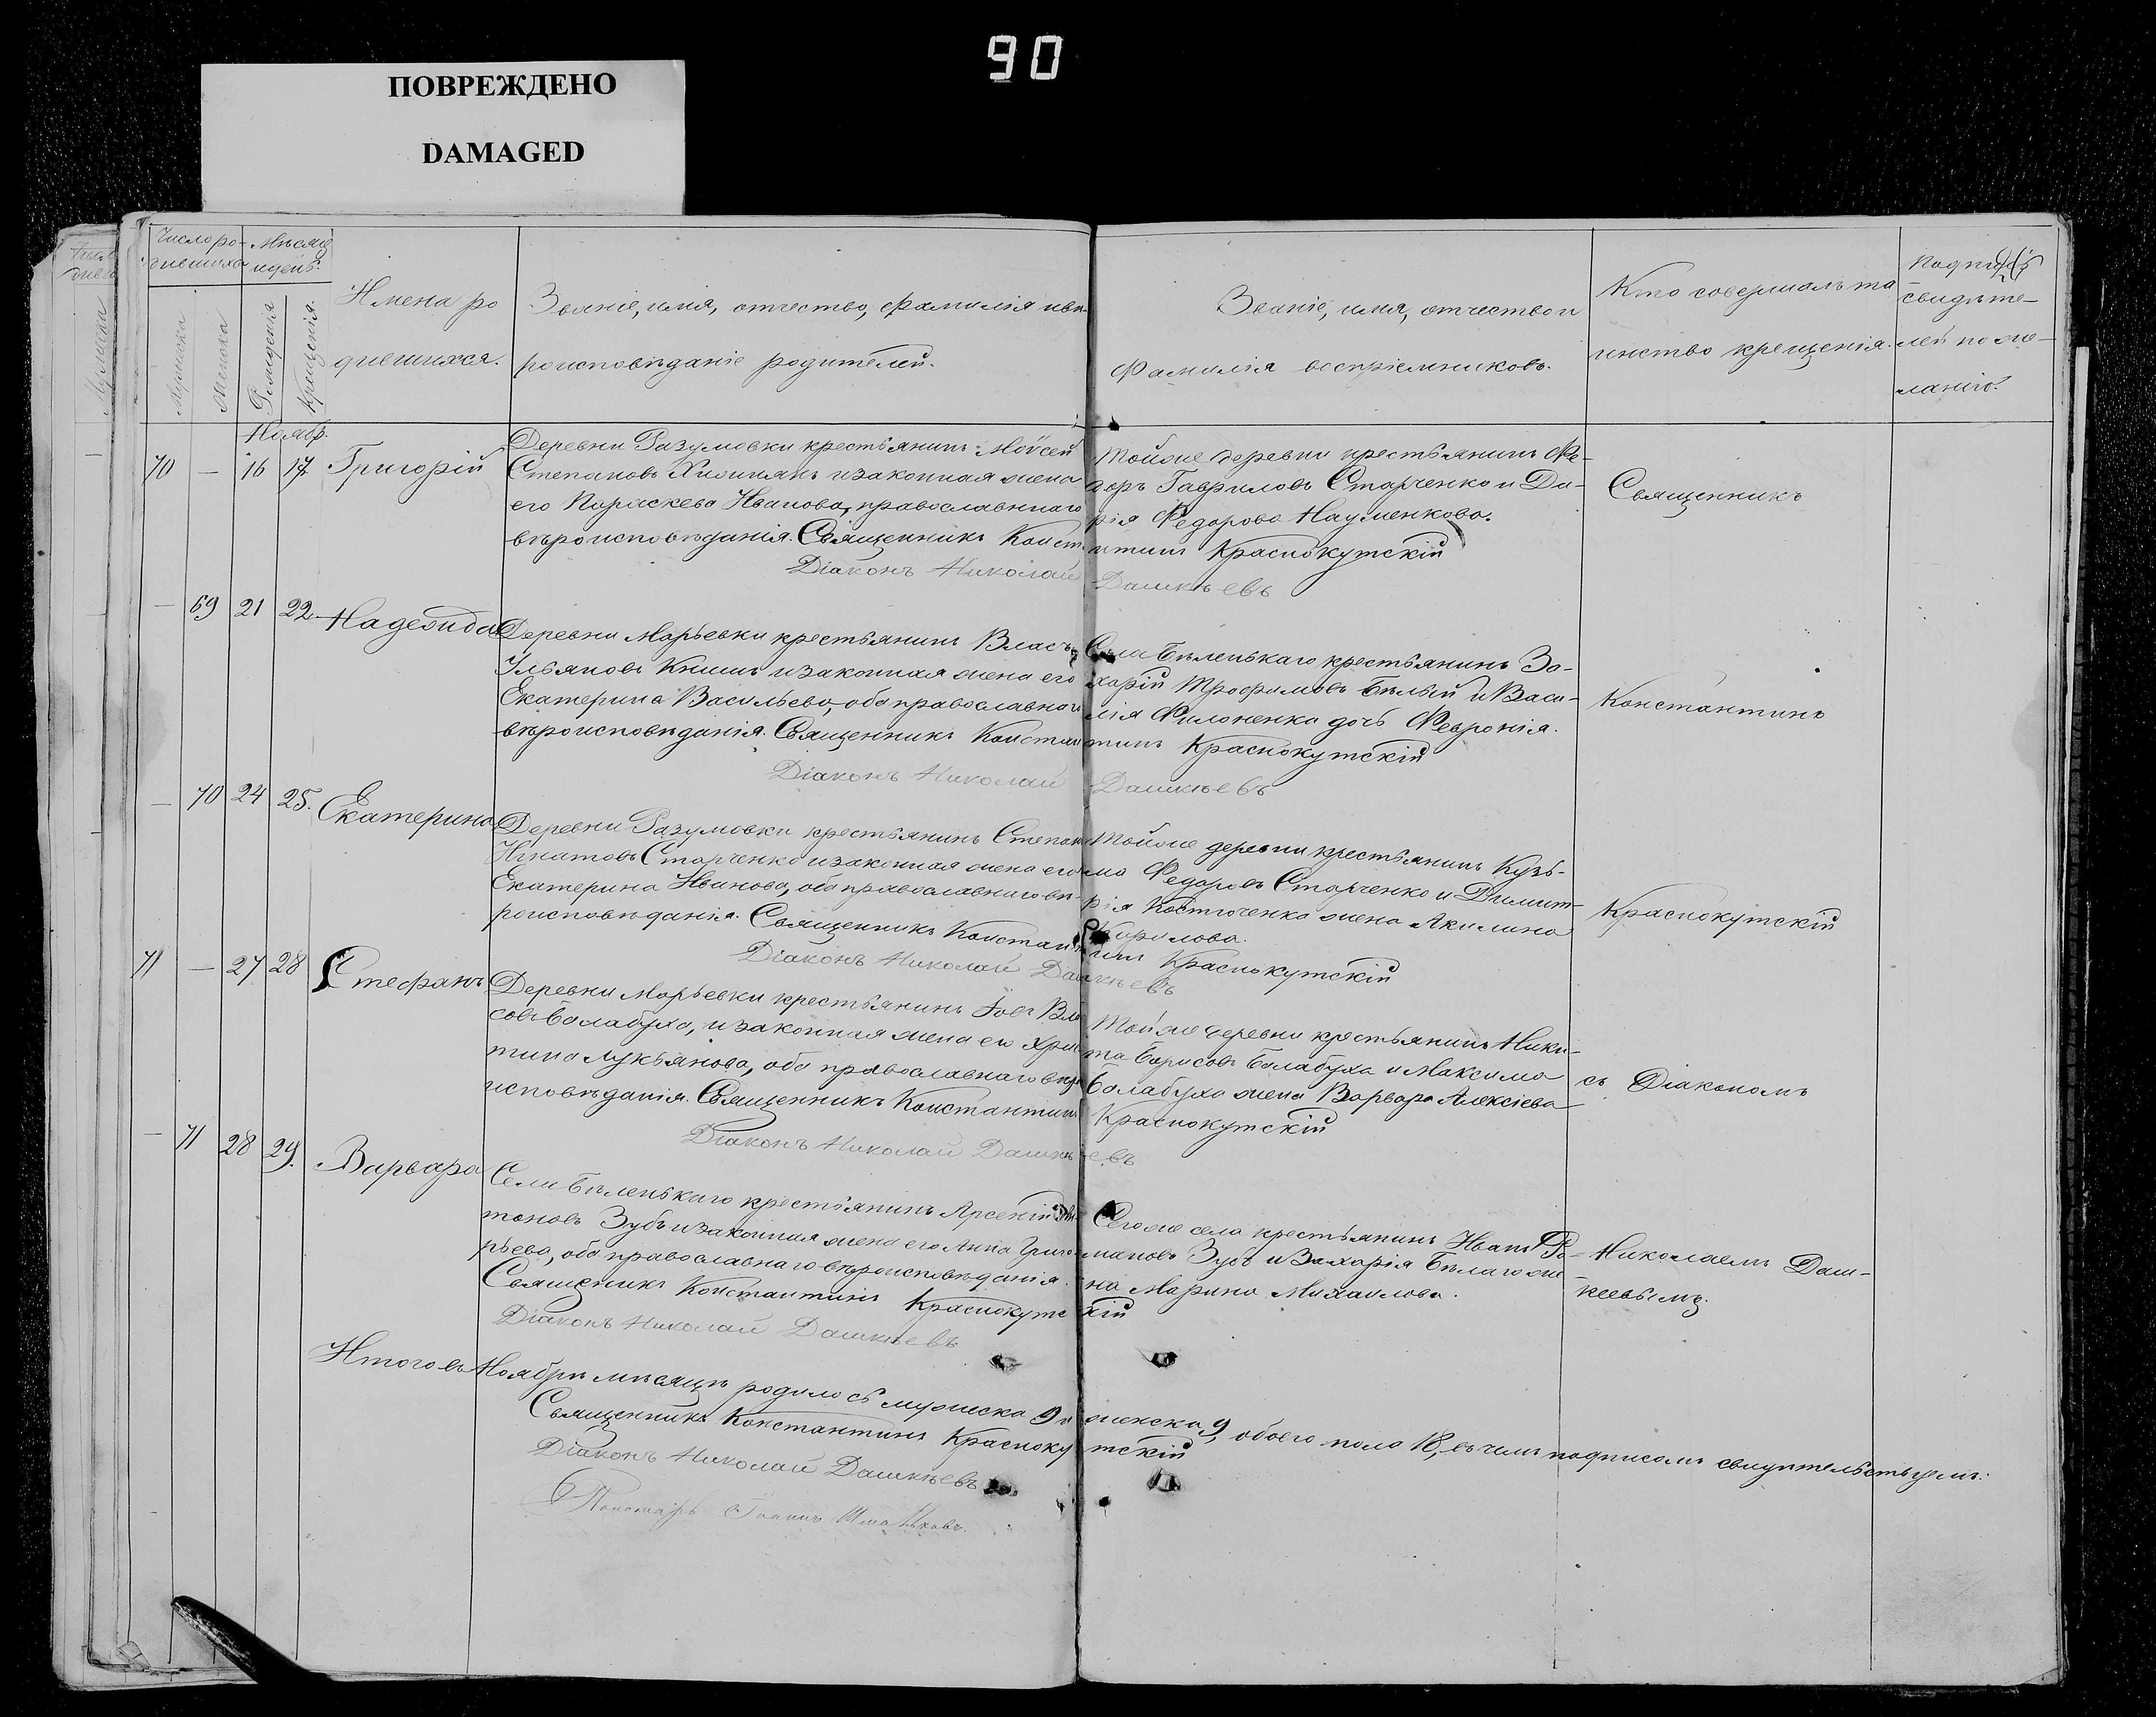 90
ПОВРЕЖДЕНО
DAMAGED
Число ро-
дившихся
Мѣсяц
и день.
Мужеска
Женска
Рожденія
Крещенія.
Имена ро
дившихся.
Званіе, имя, отчество, фамилія и вѣ-
роисповѣданіе родителей.
Званіе, имя, отчество и
фамилія воспріемниковъ.
Кто совершалъ та
инство крещенія.
свидѣте-
лей по же-
ланію.
Ноябр.
70 — 16 17 Григорій
Деревни Разумовки крестьянинъ Мойсей
Степановъ и законная жена
его Параскева Иванова, православнаго
вѣроисповѣданія. Священникъ Конст
Діаконъ Николай
Тойже деревни крестьянинъ Фе-
доръ Гавриловъ Старченко и Да-
рія Федорова Науменкова.
нтинъ Краснокутскій
Дашкѣевъ
— 69 21 22 Надежда
Деревни Марьевки крестьянинъ Власъ
Ульяновъ Книшъ и законная жена его
Екатерина Васильева, оба православнаго
вѣроисповѣданія. Священникъ Констан
Діаконъ Николай
Села Бѣленькаго крестьянинъ За-
харій Трофимовъ Бѣлый и Васи-
лія Филоненка дочь Февронія.
тинъ Краснокутскій
Дашкѣевъ
— 70 24 25. Екатерина
Деревни Разумовки крестьянинъ Степанъ
Игнатовъ Старченко и законная жена его
Екатерина Иванова, оба православнаго вѣ-
роисповѣданія. Священникъ Констан
Діаконъ Николай Даш
Тойже деревни крестьянинъ Кузь-
ма Федоровъ Старченко и Димит-
рія Костюченка жена Акилина
Кирилова.
тинъ Краснокутскій
кѣевъ
71 — 27 28 Стефанъ
Деревни Марьевки крестьянинъ Іовъ Вла
совъ Балабуха, и законная жена его Хрис
тина Лукьянова, оба православнаго вѣро
исповѣданія. Священникъ Константинъ
Діаконъ Николай Дашкѣ
Той же деревни крестьянинъ Ники-
та Борисовъ Балабуха и Максима
Балабуха жена Варвара Алексіева
Краснокутскій
евъ
— 71 28 29. Варвара
Села Бѣленькаго крестьянинъ Арсеній
тоновъ Зубъ и законная жена его Анна Григо-
рьева, оба православнаго вѣроисповѣданія.
Священникъ Константинъ Краснокутс
Діаконъ Николай Дашкѣевъ
Сегоже села крестьянинъ Иванъ Ро-
мановъ Зубъ и Захарія Бѣлаго же-
на Марина Михаилова.
кій
Священникъ
Константинъ
Краснокутскій
съ Діакономъ
Николаемъ Даш-
кеевымъ.
Итого въ Ноябрѣ мѣсяцѣ родилось мужеска 9 и женска 9, обоего пола 18, въ чемъ подписомъ свидѣтельствуемъ:
Священникъ Константинъ Краснокутскій
Діаконъ Николай Дашкѣевъ
Пономарь Іоаннъ